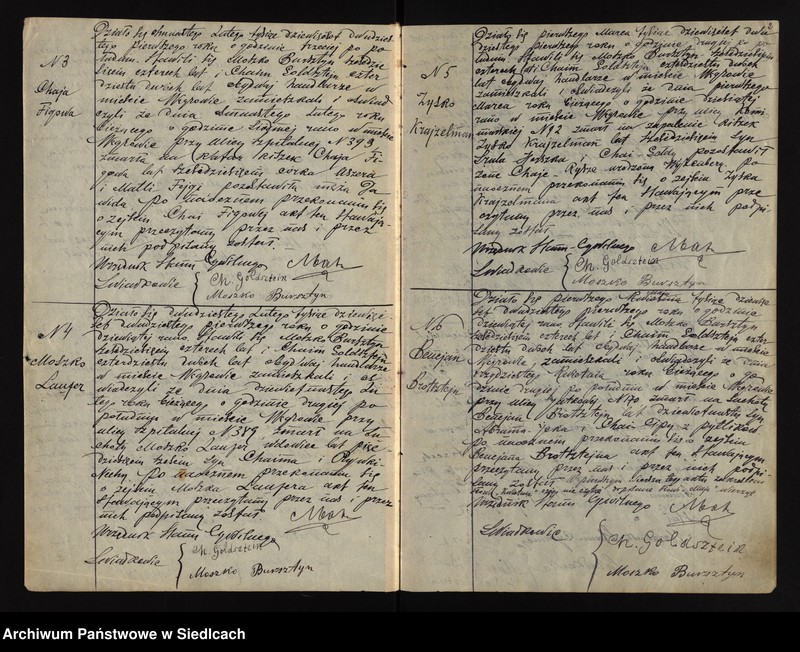 N3
Chaja
Figowa
Działo się ósmnastego Lutego tysiąc dziewięćset dwudzies-
tego pierwszego roku o godzinie trzeciej po po-
łudniu. Stawili się Moszko Bursztyn
czterech lat i Chaim Goldsztejn czter
dziestu dwóch lat obydwaj handlarze w
mieście Węgrowie zamieszkali i oświad
czyli że dnia ósmnastego Lutego roku
bieżącego o godzinie siódmej rano w mieście
Węgrowie przy ulicy Szpitalnej N 393
zmarła na Chaja Fi
gowa lat córka
i Małki pozostawiła męża Da
wida Po naocznem przekonaniu się
o zejściu Chai Figowej akt ten stawają-
cym przeczytany przez nas i przez
nich podpisany został.
Urzędnik Stanu Cywilnego
Świadkowie
Ch. Goldsztein
Moszko Bursztyn
N4
Moszko
Laufer
Działo się Lutego tysiąc dziewięć
set dwudziestego pierwszego roku o godzinie
dziewiątej rano. Stawili się Moszko Bursztyn
czterech lat i Chaim Goldsztejn
czterdziestu dwóch lat obydwaj handlarze
w mieście Węgrowie zamieszkali i oś
wiadczyli że dnia dziewiętnastego Lu
tego roku bieżącego o godzinie drugiej po
południu w mieście Węgrowie przy
ulicy Szpitalnej N 389 zmarł na su
choty Moszko Laufer lat pięć
dziesiąt sześć syn Chaima i
Nechy Po naocznem przekonaniu się
o zejściu Moszka Laufera akt ten
stawającym przeczytany przez nas i przez
nich podpisany został
Urzędnik Stanu Cywilnego
Świadkowie
Ch. Goldsztein
Moszko Bursztyn
2
N5
Zysko
Krajzelman
Działo się pierwszego Marca tysiąc dziewięćset dwu
dziestego pierwszego roku o godzinie drugiej po po
łudniu. Stawili się Moszko Bursztyn
czterech lat i Chaim Goldsztejn czterdziestu dwóch
lat obydwaj handlarze w mieście Węgrowie
zamieszkali i oświadczyli że dnia pierwszego
Marca roku bieżącego o godzinie dziesiątej
rano w mieście Węgrowie przy ulicy
N 2 zmarł na zapalenie kiszek
Zysko Krajzelman lat syn
Szula i Chai-Saldy pozostawił
żonę Chaję-Ryfkę urodzoną Po
naocznem przekonaniu się o zejściu Zyska
Krajzelmana akt ten stawającym prze
czytany przez nas i przez nich podpi
sany został
Urzędnik Stanu Cywilnego
Świadkowie
Ch. Goldsztein
Moszko Bursztyn
N6
Bencjan
Brotsztejn
Działo się pierwszego Kwietnia tysiąc dziewięć
set dwudziestego pierwszego roku o godzinie
dziewiątej rano Stawili się Moszko Bursztyn
czterech lat i Chaim Goldsztejn czter
dziestu dwóch lat obydwaj handlarze w mieście
Węgrowie zamieszkali i oświadczyli że dnia
trzydziestego Kwietnia roku bieżącego o go
dzinie drugiej po południu w mieście Węgrowie
przy ulicy N 170 zmarł na suchoty
Bencjan Brotsztejn lat dziewiętnaście syn
Abrama-Icka i Chai Cipy z
Po naocznem przekonaniu się o zejściu
Bencjana Brotsztejna akt ten stawającym
przeczytany przez nas i przez nich podpi
sany został
Urzędnik Stanu Cywilnego
Świadkowie
Ch. Goldsztein
Moszko Bursztyn
Archiwum Państwowe w Siedlcach